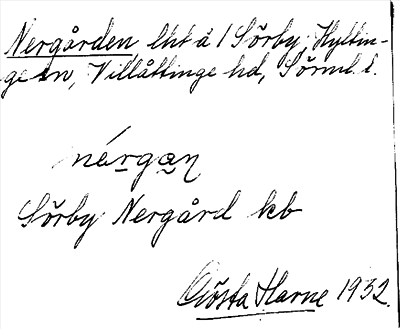 Nergården, lht å 1 Sörby, Hyltin-
ge sn, Villåttinge hd, Sörml. l.
nérgan
Sörby Nergård kb
Gösta Harne 1932.